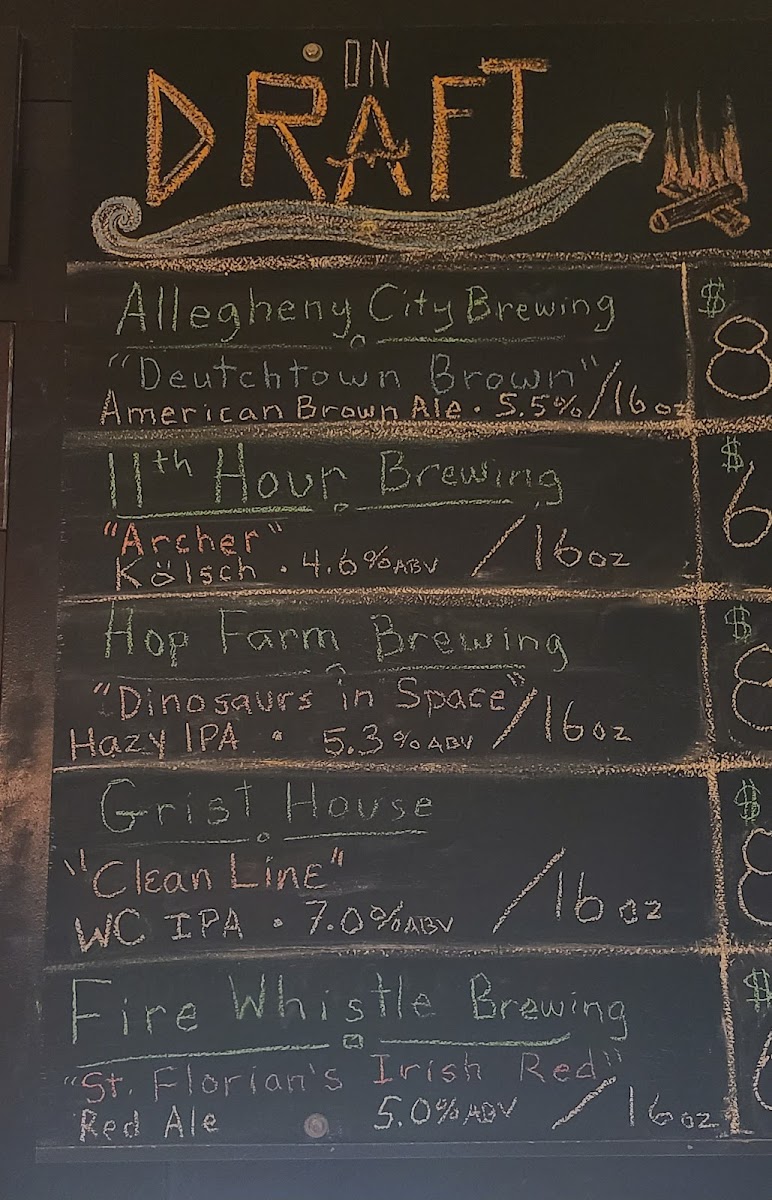 ON
DRAFT
Allegheny City Brewing
$
8
"Deutchtown Brown"
American Brown Ale · 5.5% / 16 oz
11th Hour Brewing
$
6
"Archer"
Kölsch · 4.6% ABV / 16 oz
Hop Farm Brewing
$
8
"Dinosaurs in Space"
Hazy IPA · 5.3% ABV / 16 oz
Grist House
$
8
"Clean Line"
WC IPA · 7.0% ABV / 16 oz
Fire Whistle Brewing
$
"St. Florian's Irish Red"
Red Ale 5.0% ABV / 16 oz